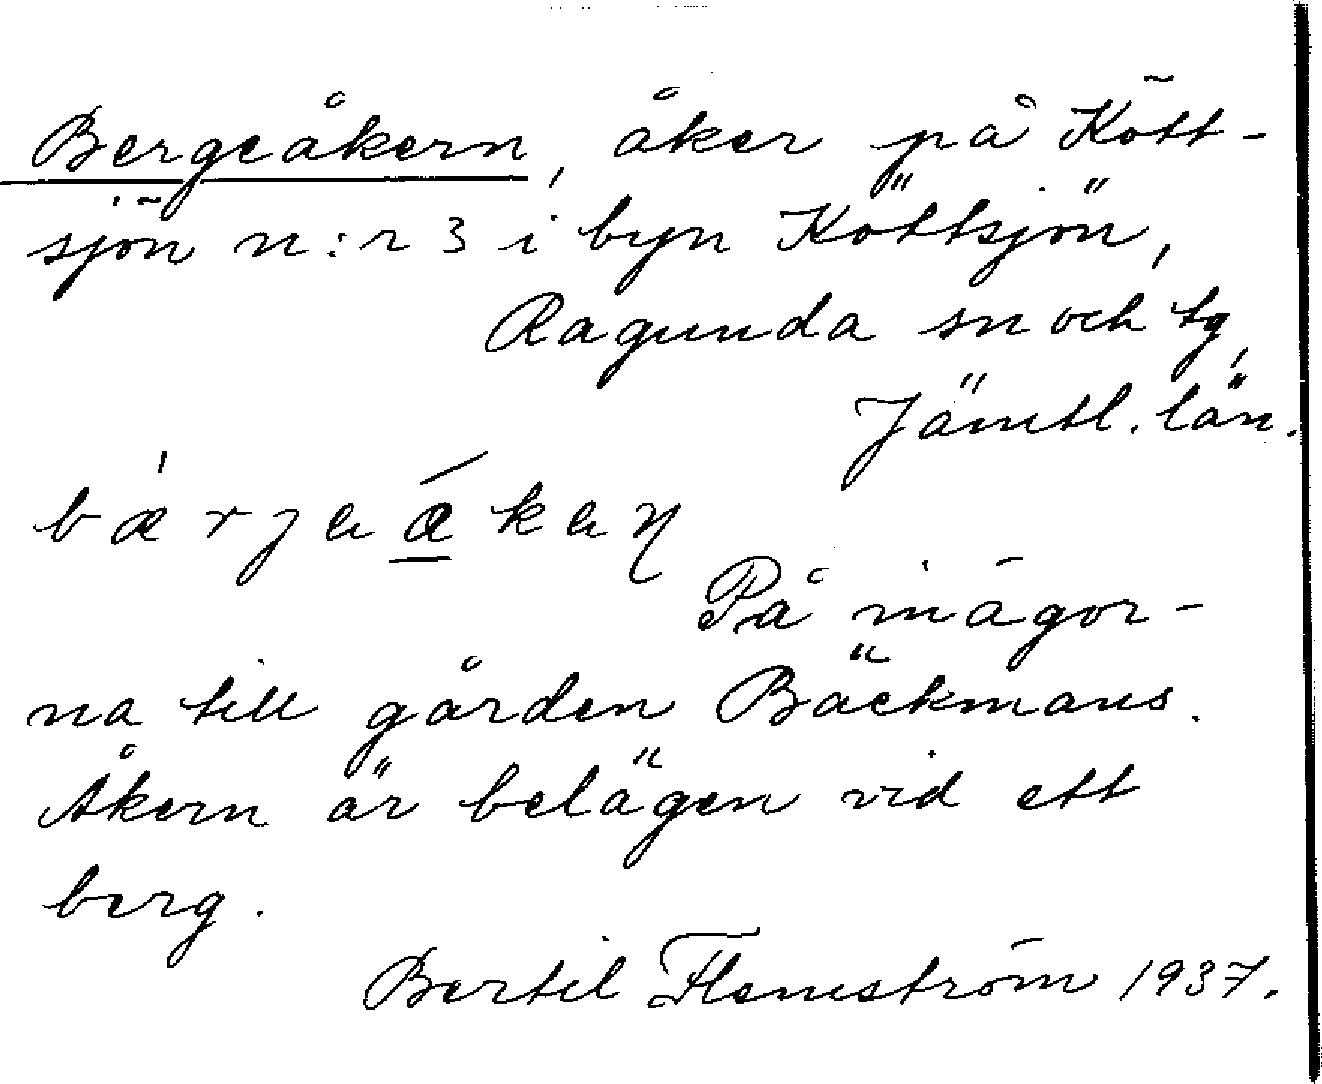 Bergeåkern, åker på Kött-
sjön n:r 3 i byn Köttsjön,
Ragunda sn och tg,
Jämtl. län.
På mägor-
na till gården Bäckmans.
Åkern är belägen vid ett
berg.
Bertil Flemström 1937.